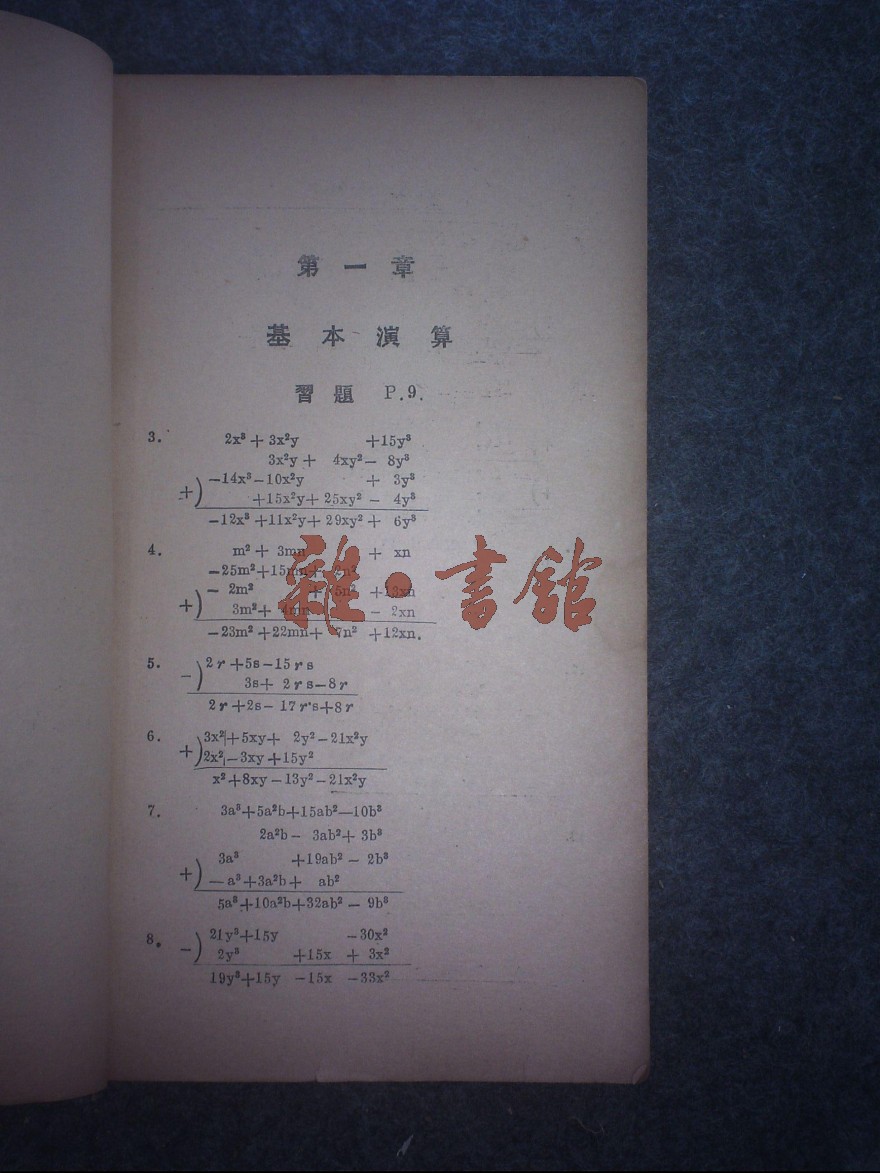 第一章
基本演算
習題 P.9.
3. 2x³ + 3x²y +15y³
3x²y + 4xy² - 8y³
-14x³-10x²y + 3y³
+) +15x²y+ 25xy² - 4y³
-12x³ +11x²y+ 29xy² + 6y³
4. m² + 3mn + xn
-25m²+15mn+ 2n²
- 2m² + 5n² +13xn
+) 3m²+ 4mn - 2xn
-23m² +22mn+ 7n² +12xn.
5. 2r +5s-15rs
-) 3s+ 2rs-8r
2r +2s- 17rs+8r
6. 3x²+5xy+ 2y²-21x²y
+) 2x²-3xy+15y²
x²+8xy-13y²-21x²y
7. 3a³+5a²b+15ab²-10b³
2a²b- 3ab²+ 3b³
3a³ +19ab² - 2b³
+) -a³+3a²b+ ab²
5a³+10a²b+32ab² - 9b³
8. 21y³+15y -30x²
-) 2y³ +15x + 3x²
19y³+15y -15x -33x²
雜·書館